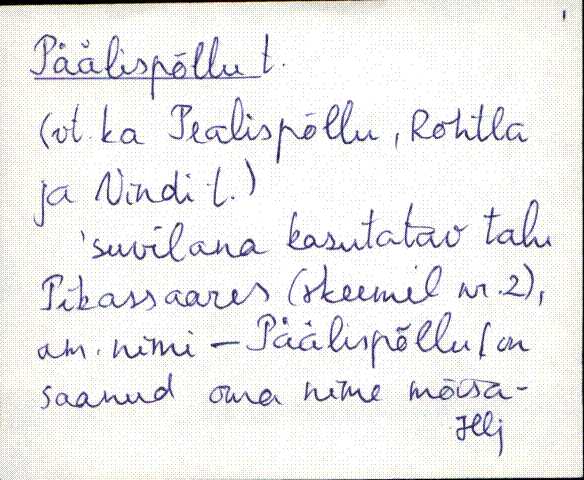 Päälispõllu t.
(vt. ka Pealispõllu, Rohtla
ja Nindi t.)
'suvilana kasutatav talu
Pikassaares (skeemil nr. 2),
am. nimi – Päälispõllu/on
saanud oma nime mõisa-